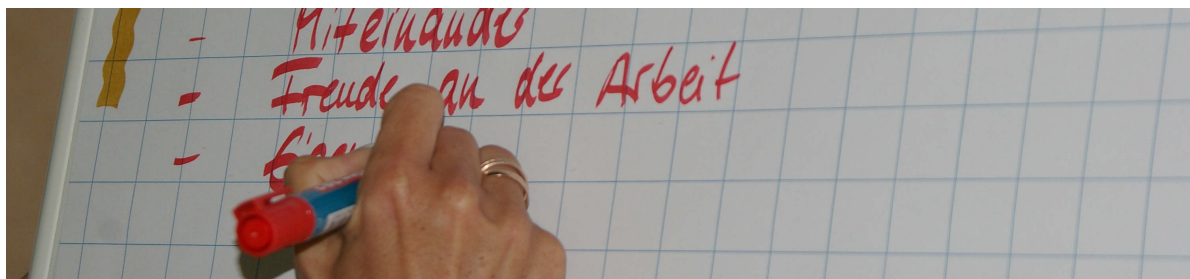 - Miteinander
- Freude an der Arbeit
-